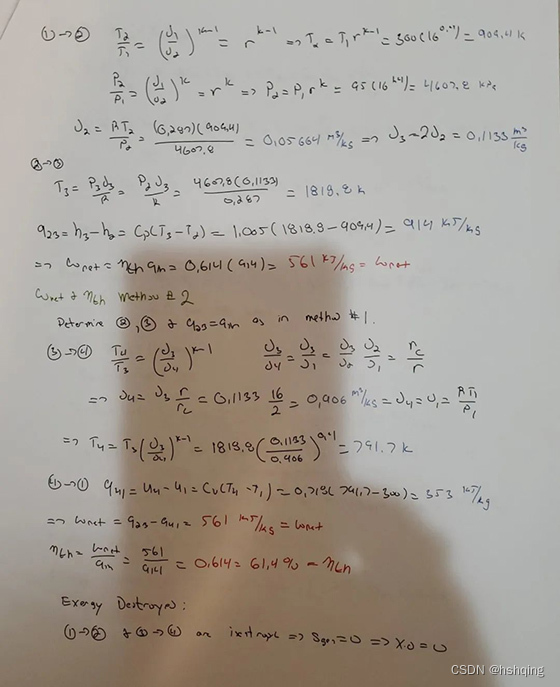 ①→② T₂/T₁ = (υ₁/υ₂)^(k-1) = r^(k-1) => T₂ = T₁ r^(k-1) = 300(16^0.4) = 909.4 k
P₂/P₁ = (υ₁/υ₂)^k = r^k => P₂ = P₁ r^k = 95(16^1.4) = 4607.8 kPa
υ₂ = RT₂/P₂ = (0,287)(909,4)/4607,8 = 0,05664 m³/kg => υ₃ = 2υ₂ = 0,1133 m³/kg
②→③
T₃ = P₃υ₃/R = P₂υ₃/R = 4607,8(0,1133)/0,287 = 1818,8 k
q₂₃ = h₃-h₂ = Cp(T₃-T₂) = 1.005(1818,8-909,4) = 914 kJ/kg
=> ωnet = ηth qin = 0,614(914) = 561 kJ/kg = ωnet
ωnet & ηth Method # 2
Determine ②,③ & q₂₃=qin as in method #1.
③→④ T₄/T₃ = (υ₃/υ₄)^(k-1) υ₃/υ₄ = υ₃/υ₁ = υ₃/υ₂ υ₂/υ₁ = rc/r
=> υ₄ = υ₃ r/rc = 0,1133 16/2 = 0,906 m³/kg = υ₄ = υ₁ = RT₁/P₁
=> T₄ = T₃(υ₃/υ₁)^(k-1) = 1818,8(0,1133/0,906)^0,4 = 791.7 k
④→① q₄₁ = u₄-u₁ = Cv(T₄-T₁) = 0,718(791,7-300) = 353 kJ/kg
=> ωnet = q₂₃-q₄₁ = 561 kJ/kg = ωnet
ηth = ωnet/qin = 561/914 = 0,614 = 61,4% = ηth
Exergy Destroyed:
①→② & ③→④ are isentropic => Sgen=0 => XD=0
CSDN @hshqing